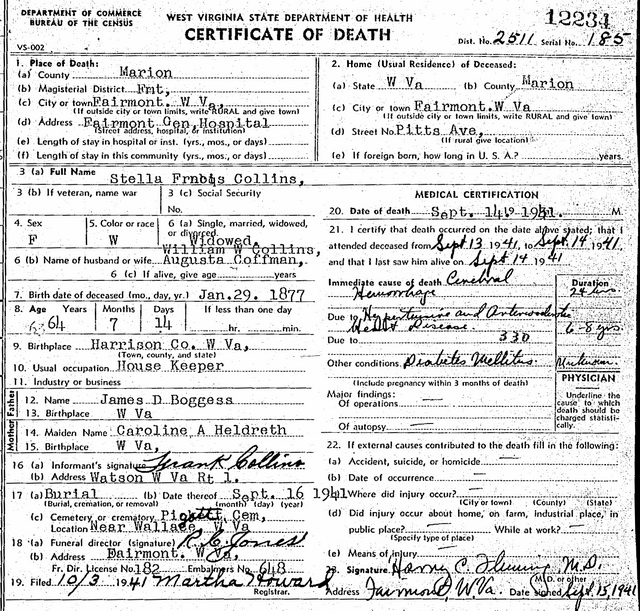 DEPARTMENT OF COMMERCE
BUREAU OF THE CENSUS
VS-002
WEST VIRGINIA STATE DEPARTMENT OF HEALTH
CERTIFICATE OF DEATH
12234
Dist. No. 2511 Serial No. 185
1. Place of Death:
(a) County Marion
(b) Magisterial District Fmt,
(c) City or town Fairmont. W Va,
(If outside city or town limits, write RURAL and give town)
(d) Address Fairmont Gen, Hospital
(Street address, hospital, or institution)
(e) Length of stay in hospital or inst. (yrs., mos., or days)
(f) Length of stay in this community (yrs., mos., or days)
2. Home (Usual Residence) of Deceased:
(a) State W Va (b) County Marion
(c) City or town Fairmont.W Va
(If outside city or town limits, write RURAL and give town)
(d) Street No. Pitts Ave,
(If rural give location)
(e) If foreign born, how long in U. S. A.? years.
3 (a) Full Name
Stella Collins,
3 (b) If veteran, name war
3 (c) Social Security
No.
4. Sex
F
5. Color or race
W
6 (a) Single, married, widowed,
or divorced
Widowed,
William W Collins,
6 (b) Name of husband or wife Augusta Coffman,
6 (c) If alive, give age years
7. Birth date of deceased (mo., day, yr.) Jan.29. 1877
8. Age Years Months Days If less than one day
64 7 14 hr. min.
9. Birthplace Harrison Co. W Va,
(Town, county, and state)
10. Usual occupation House Keeper
11. Industry or business
Father
12. Name James D Boggess
13. Birthplace W Va
Mother
14. Maiden Name Caroline A Heldreth
15. Birthplace W Va,
16 (a) Informant's signature Frank Collins
(b) Address Watson W Va Rt 1.
17 (a) Burial (b) Date thereof Sept. 16 1941
(Burial, cremation, or removal) (month) (day) (year)
(c) Cemetery or crematory Cem,
Location Near Wallace W Va
18 (a) Funeral director (signature) R. C. Jones
(b) Address Fairmont. W Va,
Fr. Dir. License No 182 Embalmers No. 648
19. Filed 10/3 1941 Martha Howard
Registrar.
MEDICAL CERTIFICATION
20. Date of death Sept. 14, 1941. M.
21. I certify that death occurred on the date above stated; that I
attended deceased from Sept 13 1941, to Sept 14 1941
and that I last saw him alive on Sept 14 1941
Immediate cause of death Cerebral
Hemorrhage
Duration
24 hrs
Due to Hypertensive and
Heart Disease
6-8 yrs
Due to 330
Other conditions Diabetes Mellitus.
(Include pregnancy within 3 months of death)
Major findings:
Of operations
Of autopsy
PHYSICIAN
Underline the
cause to which
death should be
charged statisti-
cally.
22. If external causes contributed to the death fill in the following:
(a) Accident, suicide, or homicide
(b) Date of occurrence
Where did injury occur?
(City or town) (County) (State)
(d) Did injury occur about home, on farm, industrial place, in
public place? While at work?
(Specify type of place)
(e) Means of injury
23. Signature Fleming M.D.
(M.D. or other)
Address Fairmont, W. Va. Date signed Sept. 15, 1941